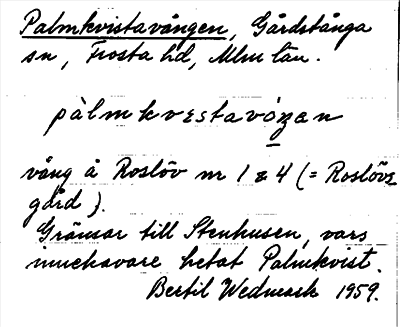 Palmkvistavången, Gårdstånga
sn, Frosta hd, Mlm län.
pàlmkvestavóŋen
vång å Roslöv nr 1 & 4 (= Roslövs
gård).
Gränsar till Stenhusen, vars
innehavare hetat Palmkvist.
Bertil Wedmark 1959.